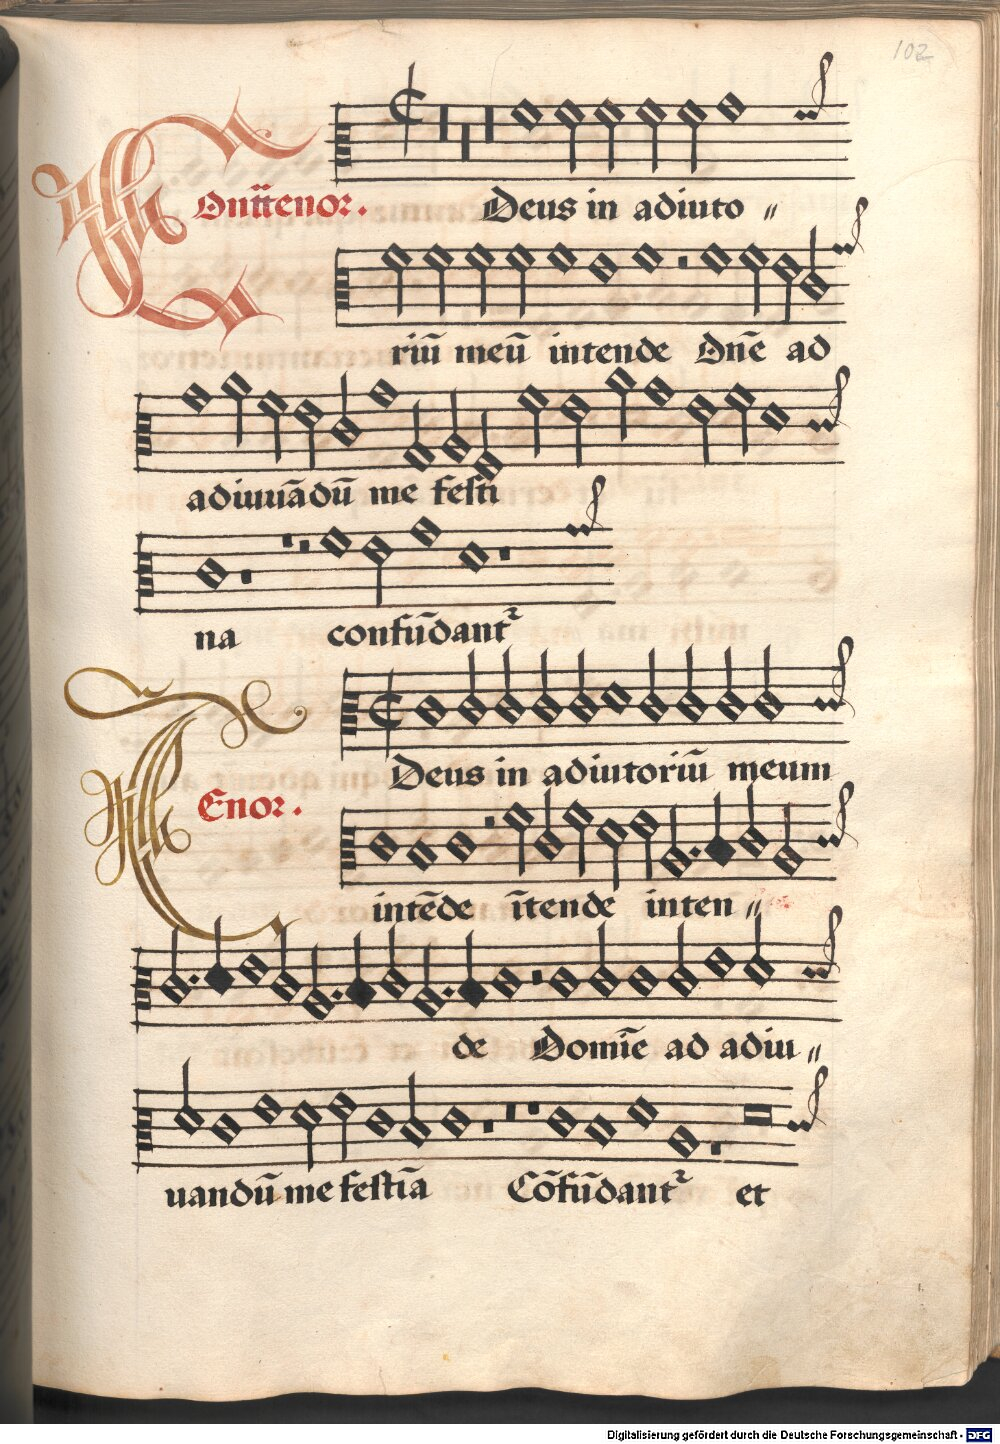 102
Conttenor.
Deus in adiuto //
riū meū intende Dn̄e ad
adiuuādū me festi
na confūdant᷑
Tenor.
Deus in adiutoriū meum
intēde ītende inten //
de Domīe ad adiu //
uandū me festīa Cōfūdant᷑ et
Digitalisierung gefördert durch die Deutsche Forschungsgemeinschaft - DFG